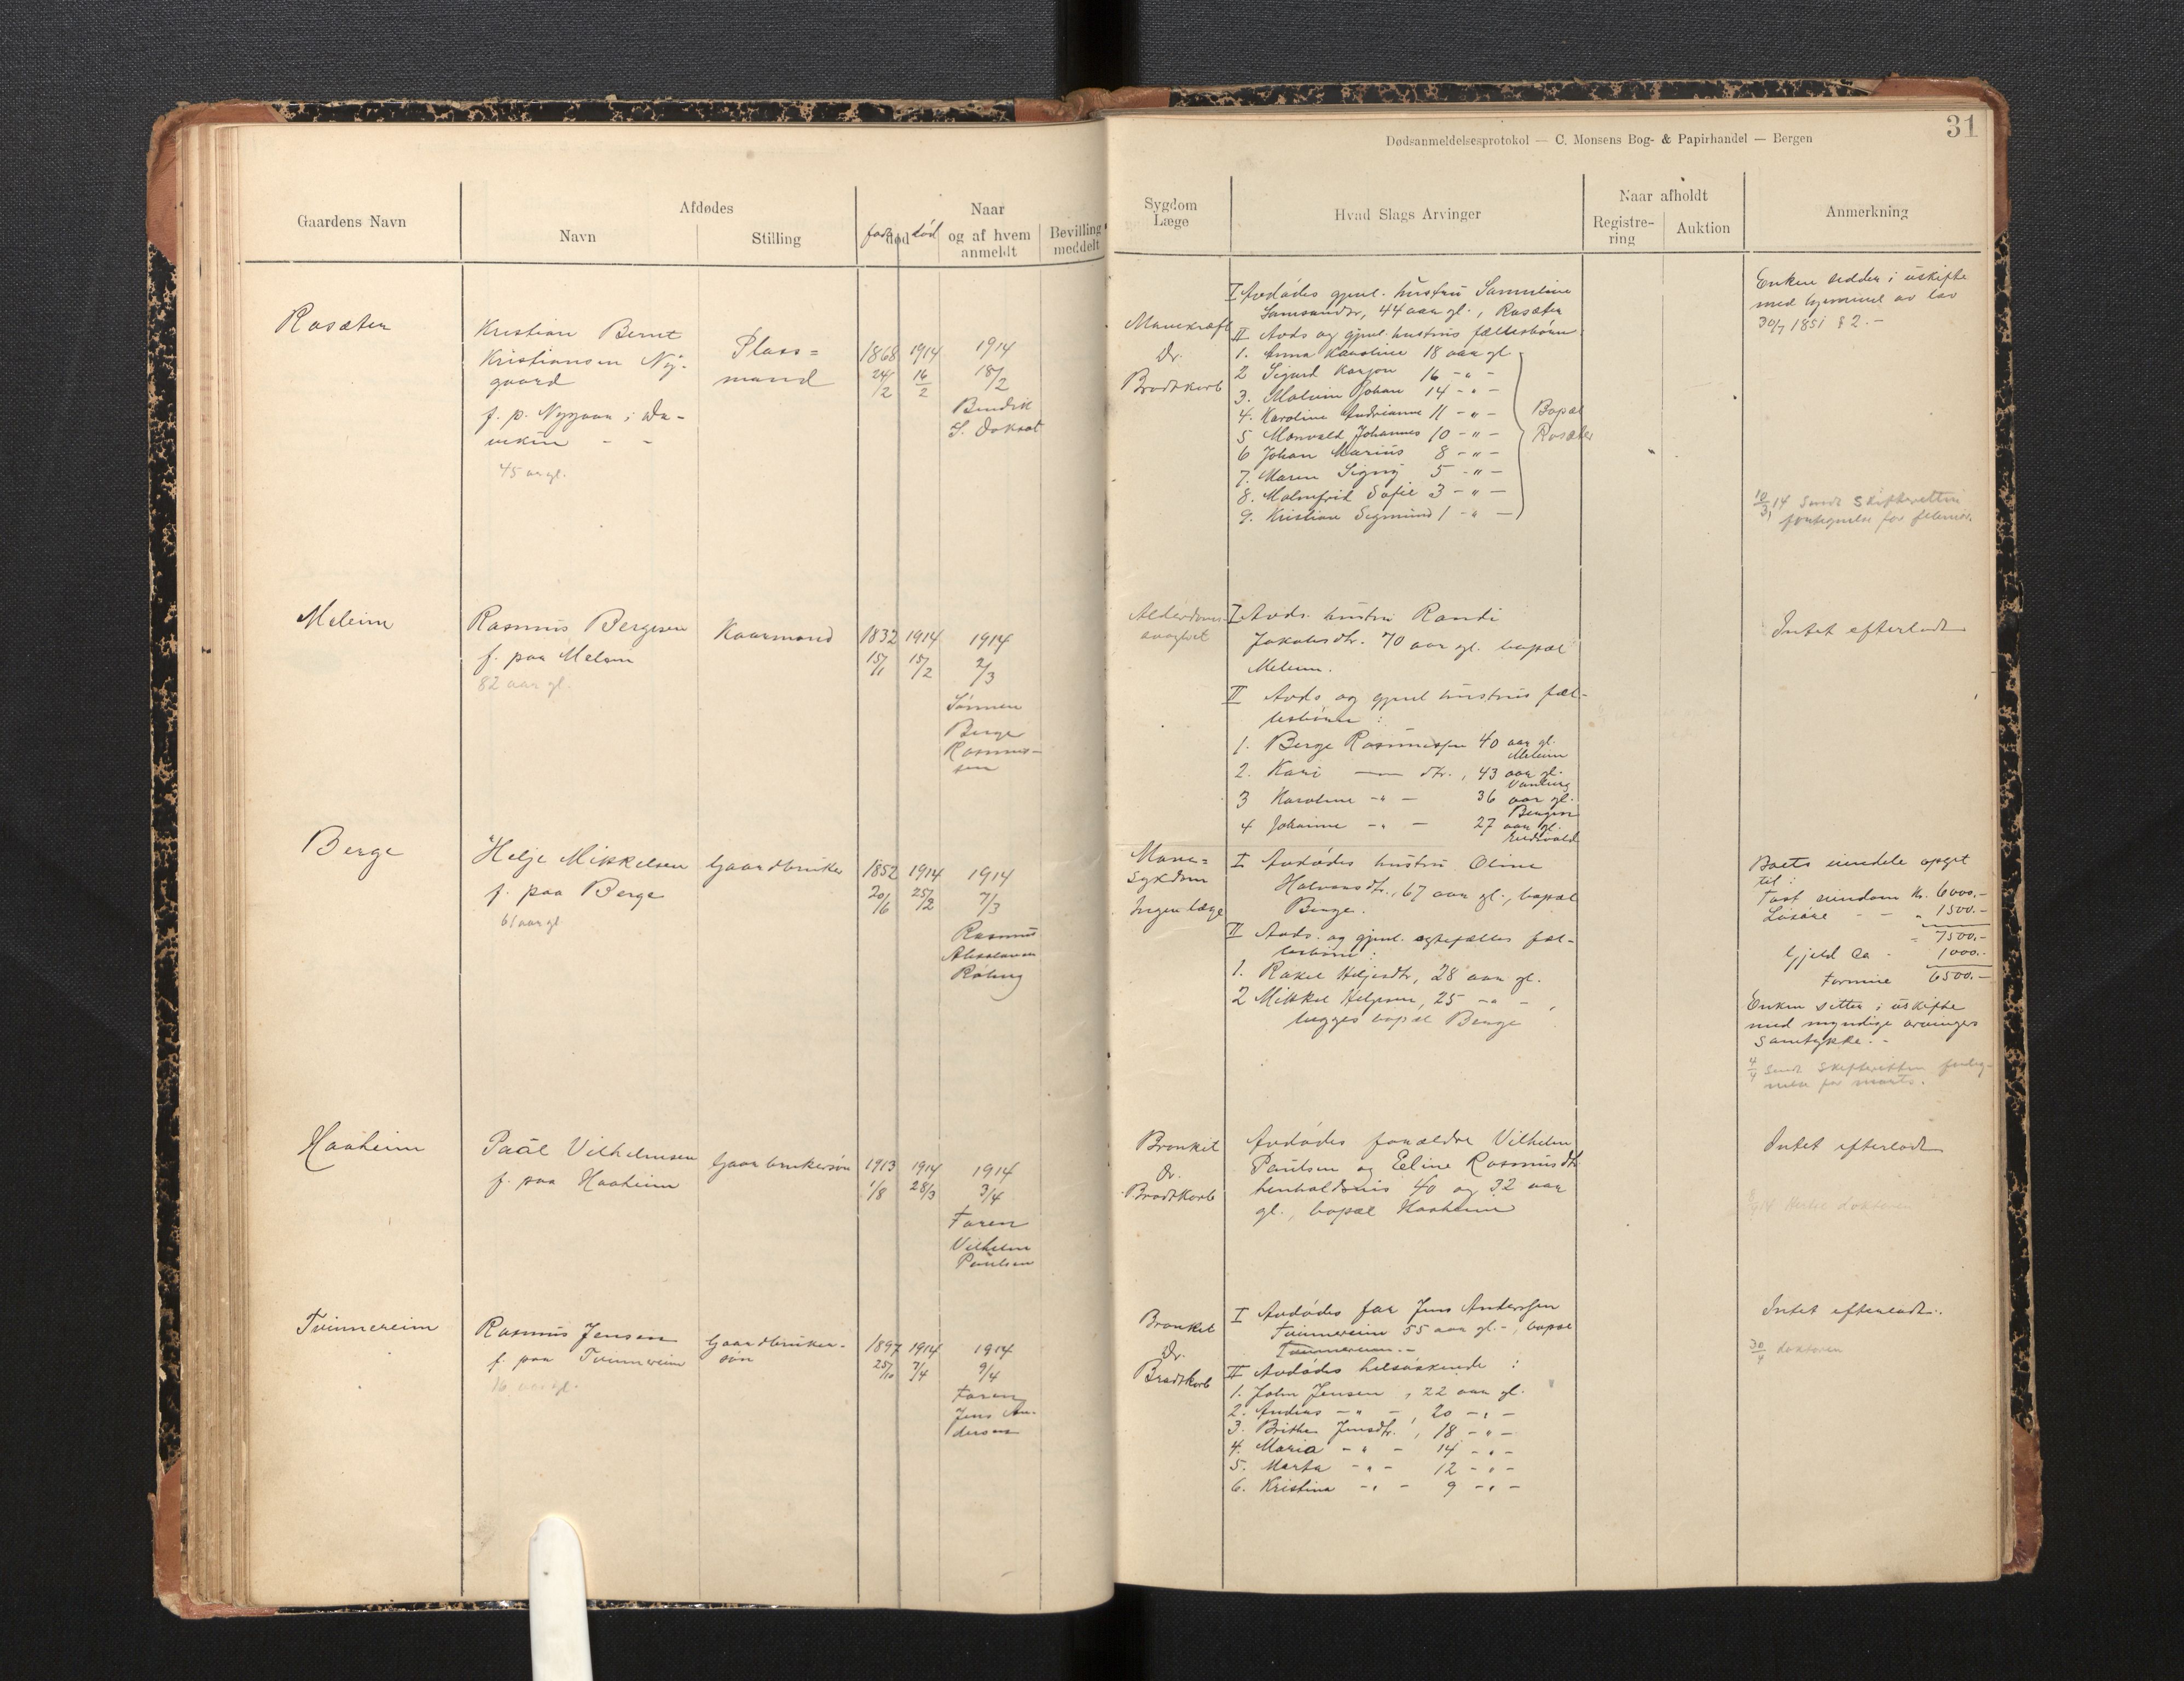 Dødsanmeldelsesprotokol — C. Monsens Bog- & Papirhandel — Bergen
31
Gaardens Navn
Afdødes
Navn
Stilling
født
død
død
Naar
og af hvem
anmeldt
Bevilling
meddelt
Sygdom
Læge
Hvad Slags Arvinger
Naar afholdt
Registre-
ring
Auktion
Anmerkning
Rosæter
Kristian Bernt
Kristiansen Ny-
gaard
f. p. Nygaar i Da-
45 aar gl.
Plass=
mand
1868
24/2
1914
16/2
1914
18/2
Bendik
S. Doksæt
Mavekræft
Dr.
Bradtkorb
I Avdødes gjenl. hustru Samuline
44 aar gl., Rosæter
II Avds og gjenl. hustrus fællesbørn:
1. Anna Karoline 18 aar gl
2 Sigurd Kaspar 16 - " -
3. Malvin Johan 14 - " -
4. Karoline Andrianne 11 - " -
5 Monvald Johannes 10 - " -
6 Johan Marius 8 - " -
7. Maren Signy 5 - " -
8. Malmfrid Sofie 3 - " -
9. Kristian Sigmund 1 - " -
Bopæl
Rosæter
Enken sidder i uskifte
med hjemmel av lov
30/7 1851 § 2. -
10/3 14 Sendt Skifteretten
fortegnelse for februar.
Meleim
Rasmus Bergesen
f. paa Meleim
82 aar gl.
Kaarmand
1832
15/1
1914
15/2
1914
2/3
Sønnen
Berge
Rasmus-
sen
Alderdoms-
svaghet
I Avds. hustru Randi
Jakobsdtr. 70 aar gl. bopæl
Meleim.
II Avds og gjenl hustrus fæl-
lesbørn :
1. Berge Rasmussen 40 aar gl.
Meleim
2. Kari — dtr., 43 aar gl.
3 Karoline - " - 36 aar gl.
Bergen
4 Johanne - " - 27 aar gl.
Eidsvold
Intet efterladt
Berge
Helje Mikkelsen
f. paa Berge
61 aar gl
Gaardbruker
1852
20/6
1914
25/2
1914
7/3
Rasmus
Absalonsen
Mave=
sykdom
Ingen læge
I Avdødes hustru Oline
Halvorsdtr., 67 aar gl., bopæl
Berge.
II Avds. og gjenl. egtefælles fæl-
lesbørn :
1. Rakel Heljesdtr, 28 aar gl.
2 Mikkel Heljesen, 25 - " -
begges bopæl Berge
Boets eiendele opgit
til :
Fast eiendom Kr. 6000.-
Løsøre - - " 1500.-
" 7500.-
Gjeld ca - 1000.-
Formue 6500.-
Enken sitter i uskifte
med myndige arvinges
samtykke. -
4/4 Sendt Skifteretten forteg-
nelse for marts.
Haaheim
Paal Vilhelmsen
f. paa Haaheim
Gaarbrukersøn
1913
1/8
1914
28/3
1914
3/4
Faren
Vilhelm
Paulsen
Bronkit
Dr.
Bradtkorb
Avdødes forældre Vilhelm
Paulsen og Eline Rasmusdtr
henholdsvis 40 og 32 aar
gl., bopæl Haaheim
Intet efterladt
doktoren
Tvinnereim
Rasmus Jensen
f. paa Tvinnereim
16 aar gl.
Gaardbruker-
søn
1897
25/10
1914
7/4
1914
9/4
Faren
Jens An-
dersen
Bronkit
Dr.
Bradtkorb
I Avdødes far Jens Anderssen
Tvinnereim 55 aar gl. -, bopæl
Tvinnereim. -
II Avdødes helsøskende :
1. John Jensen , 22 aar gl.
2. Andreas - " - , 20 - " -
3. Brithe Jensdtr. , 18 - " -
4. Maria - " - 14 - " -
5. Marta - " - 12 - " -
6. Kristina - " - 9 - " -
Intet efterladt.
30/4 doktoren